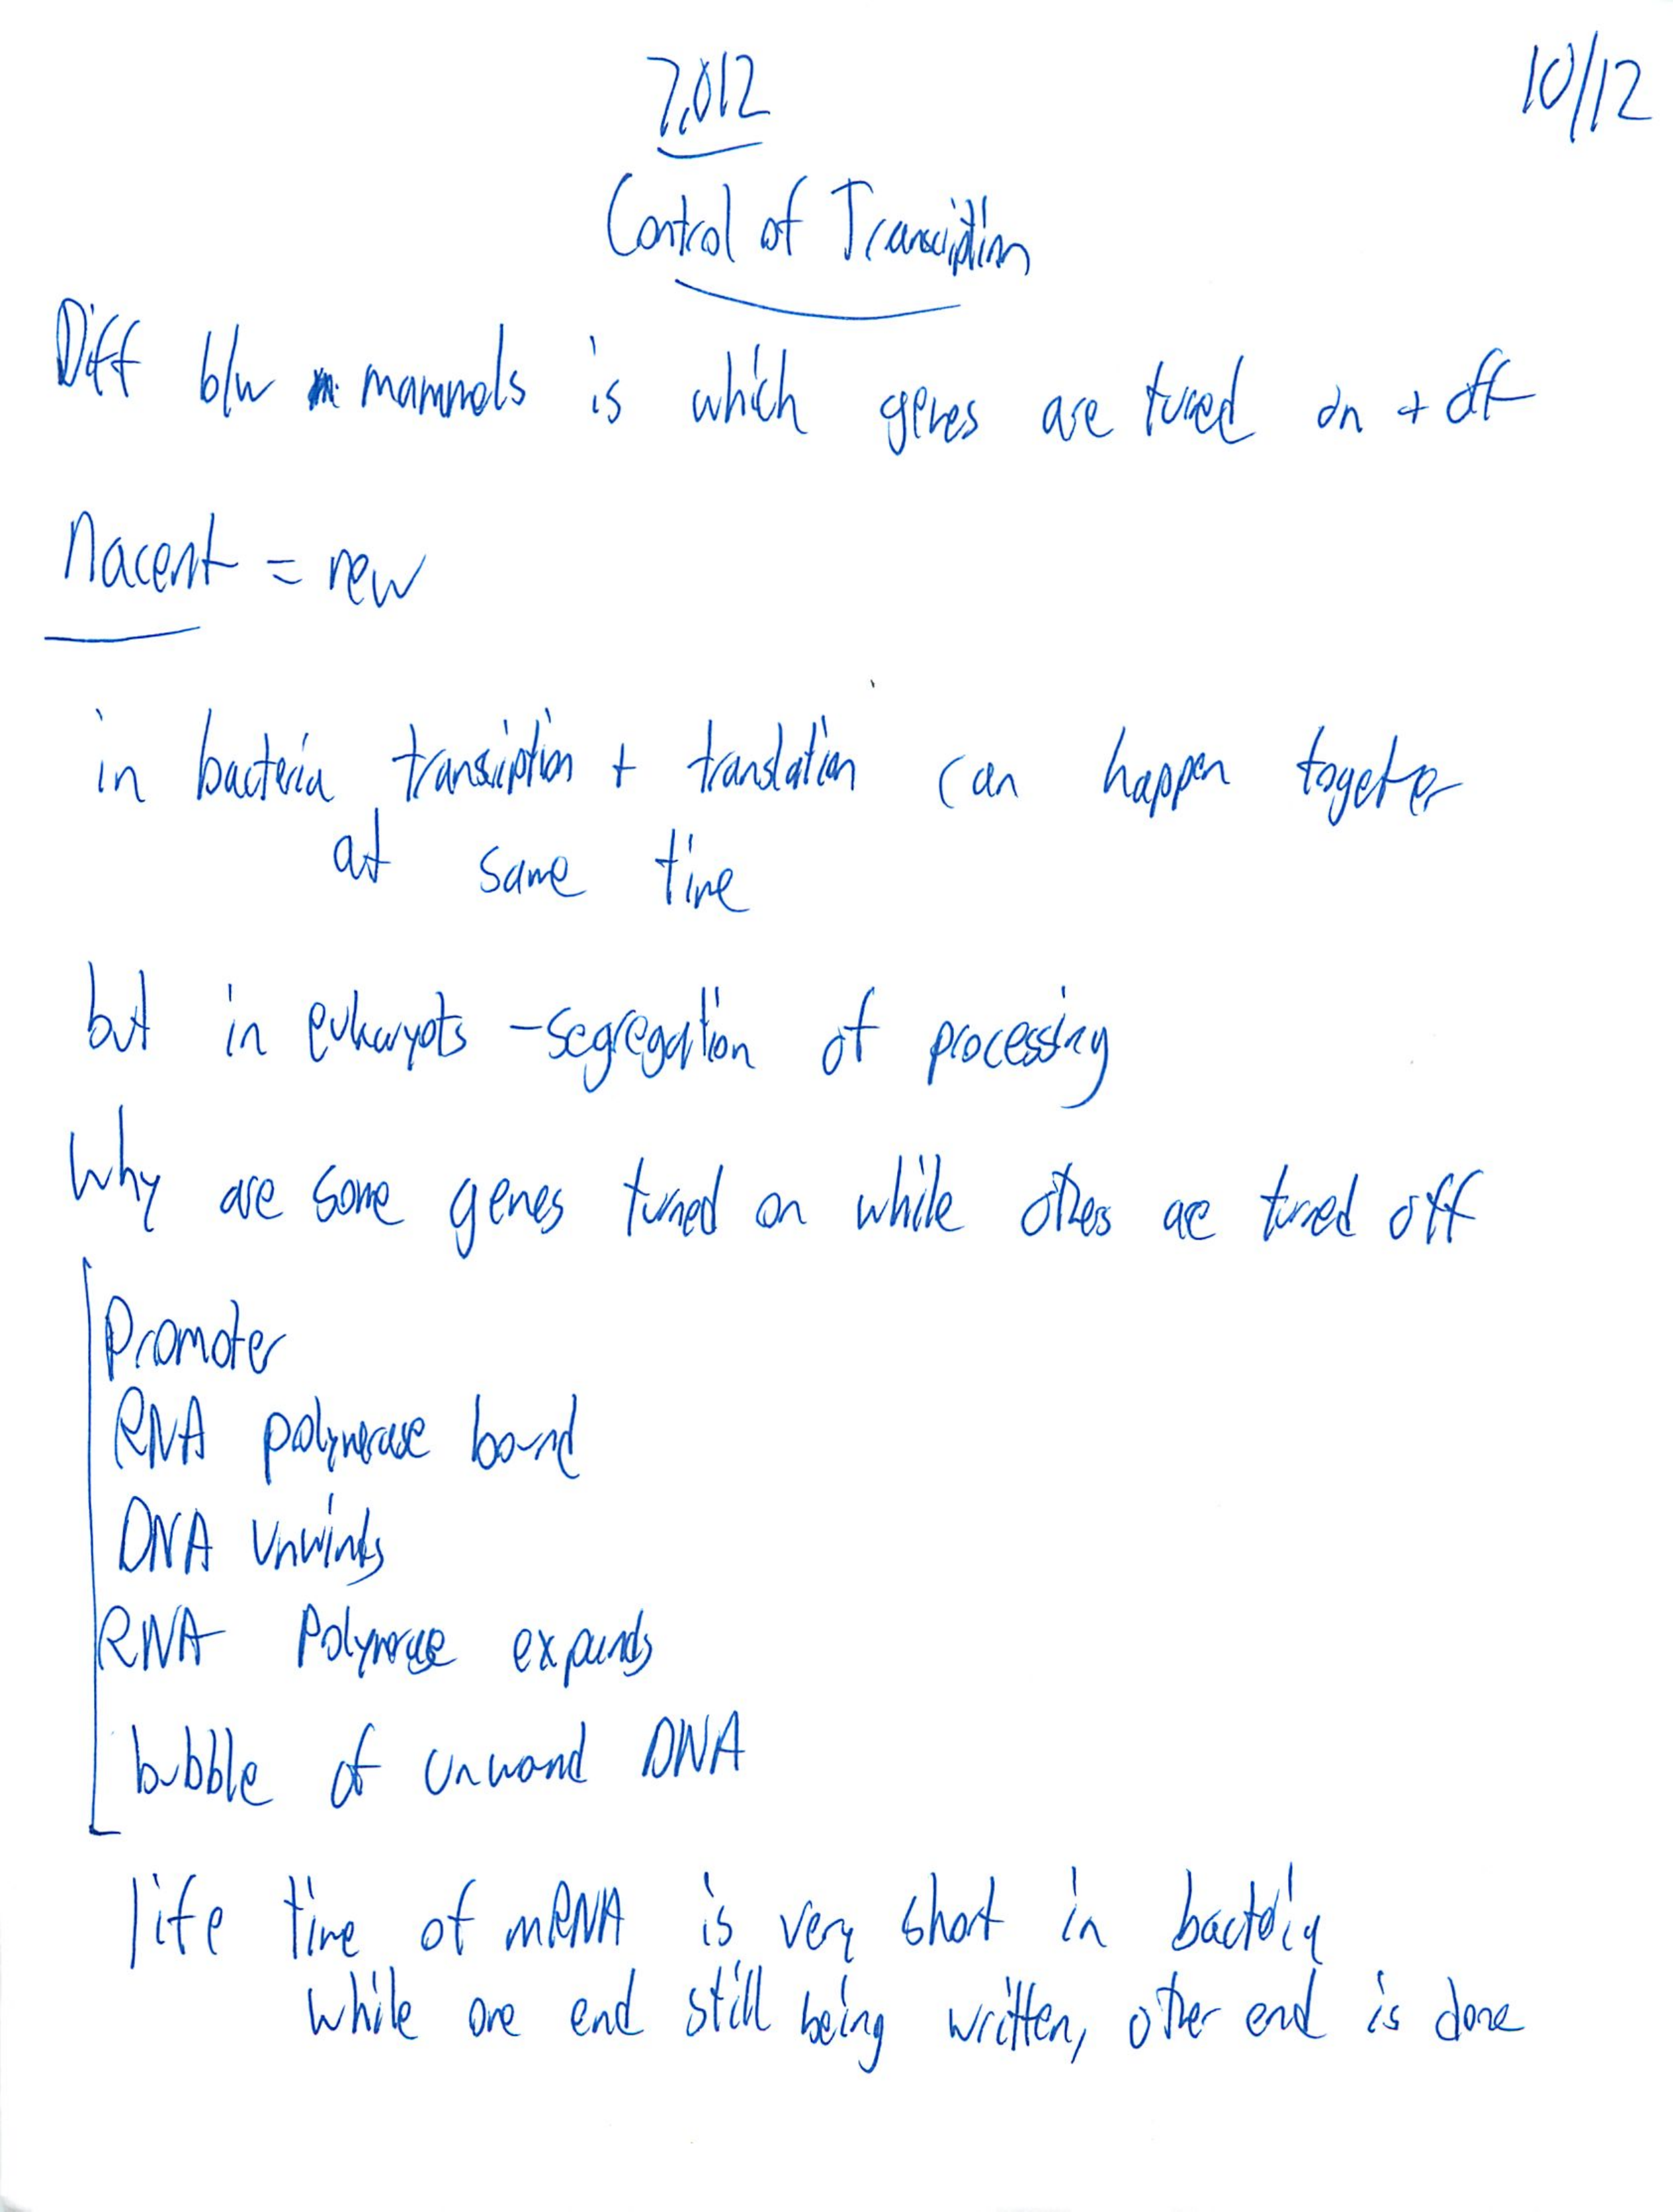 7.012
10/12
Control of Transciption
Diff b/w mammals is which genes are turned on + off
Nacent = new
in bacteria transciption + translation can happen together
at same time
but in eukaryots - segregation of processing
Why are some genes turned on while others are turned off
Promoter
RNA polymerase bound
DNA unwinds
RNA Polymerase expands
bubble of unwound DNA
life time of mRNA is very short in bacteria
while one end still being written, other end is done